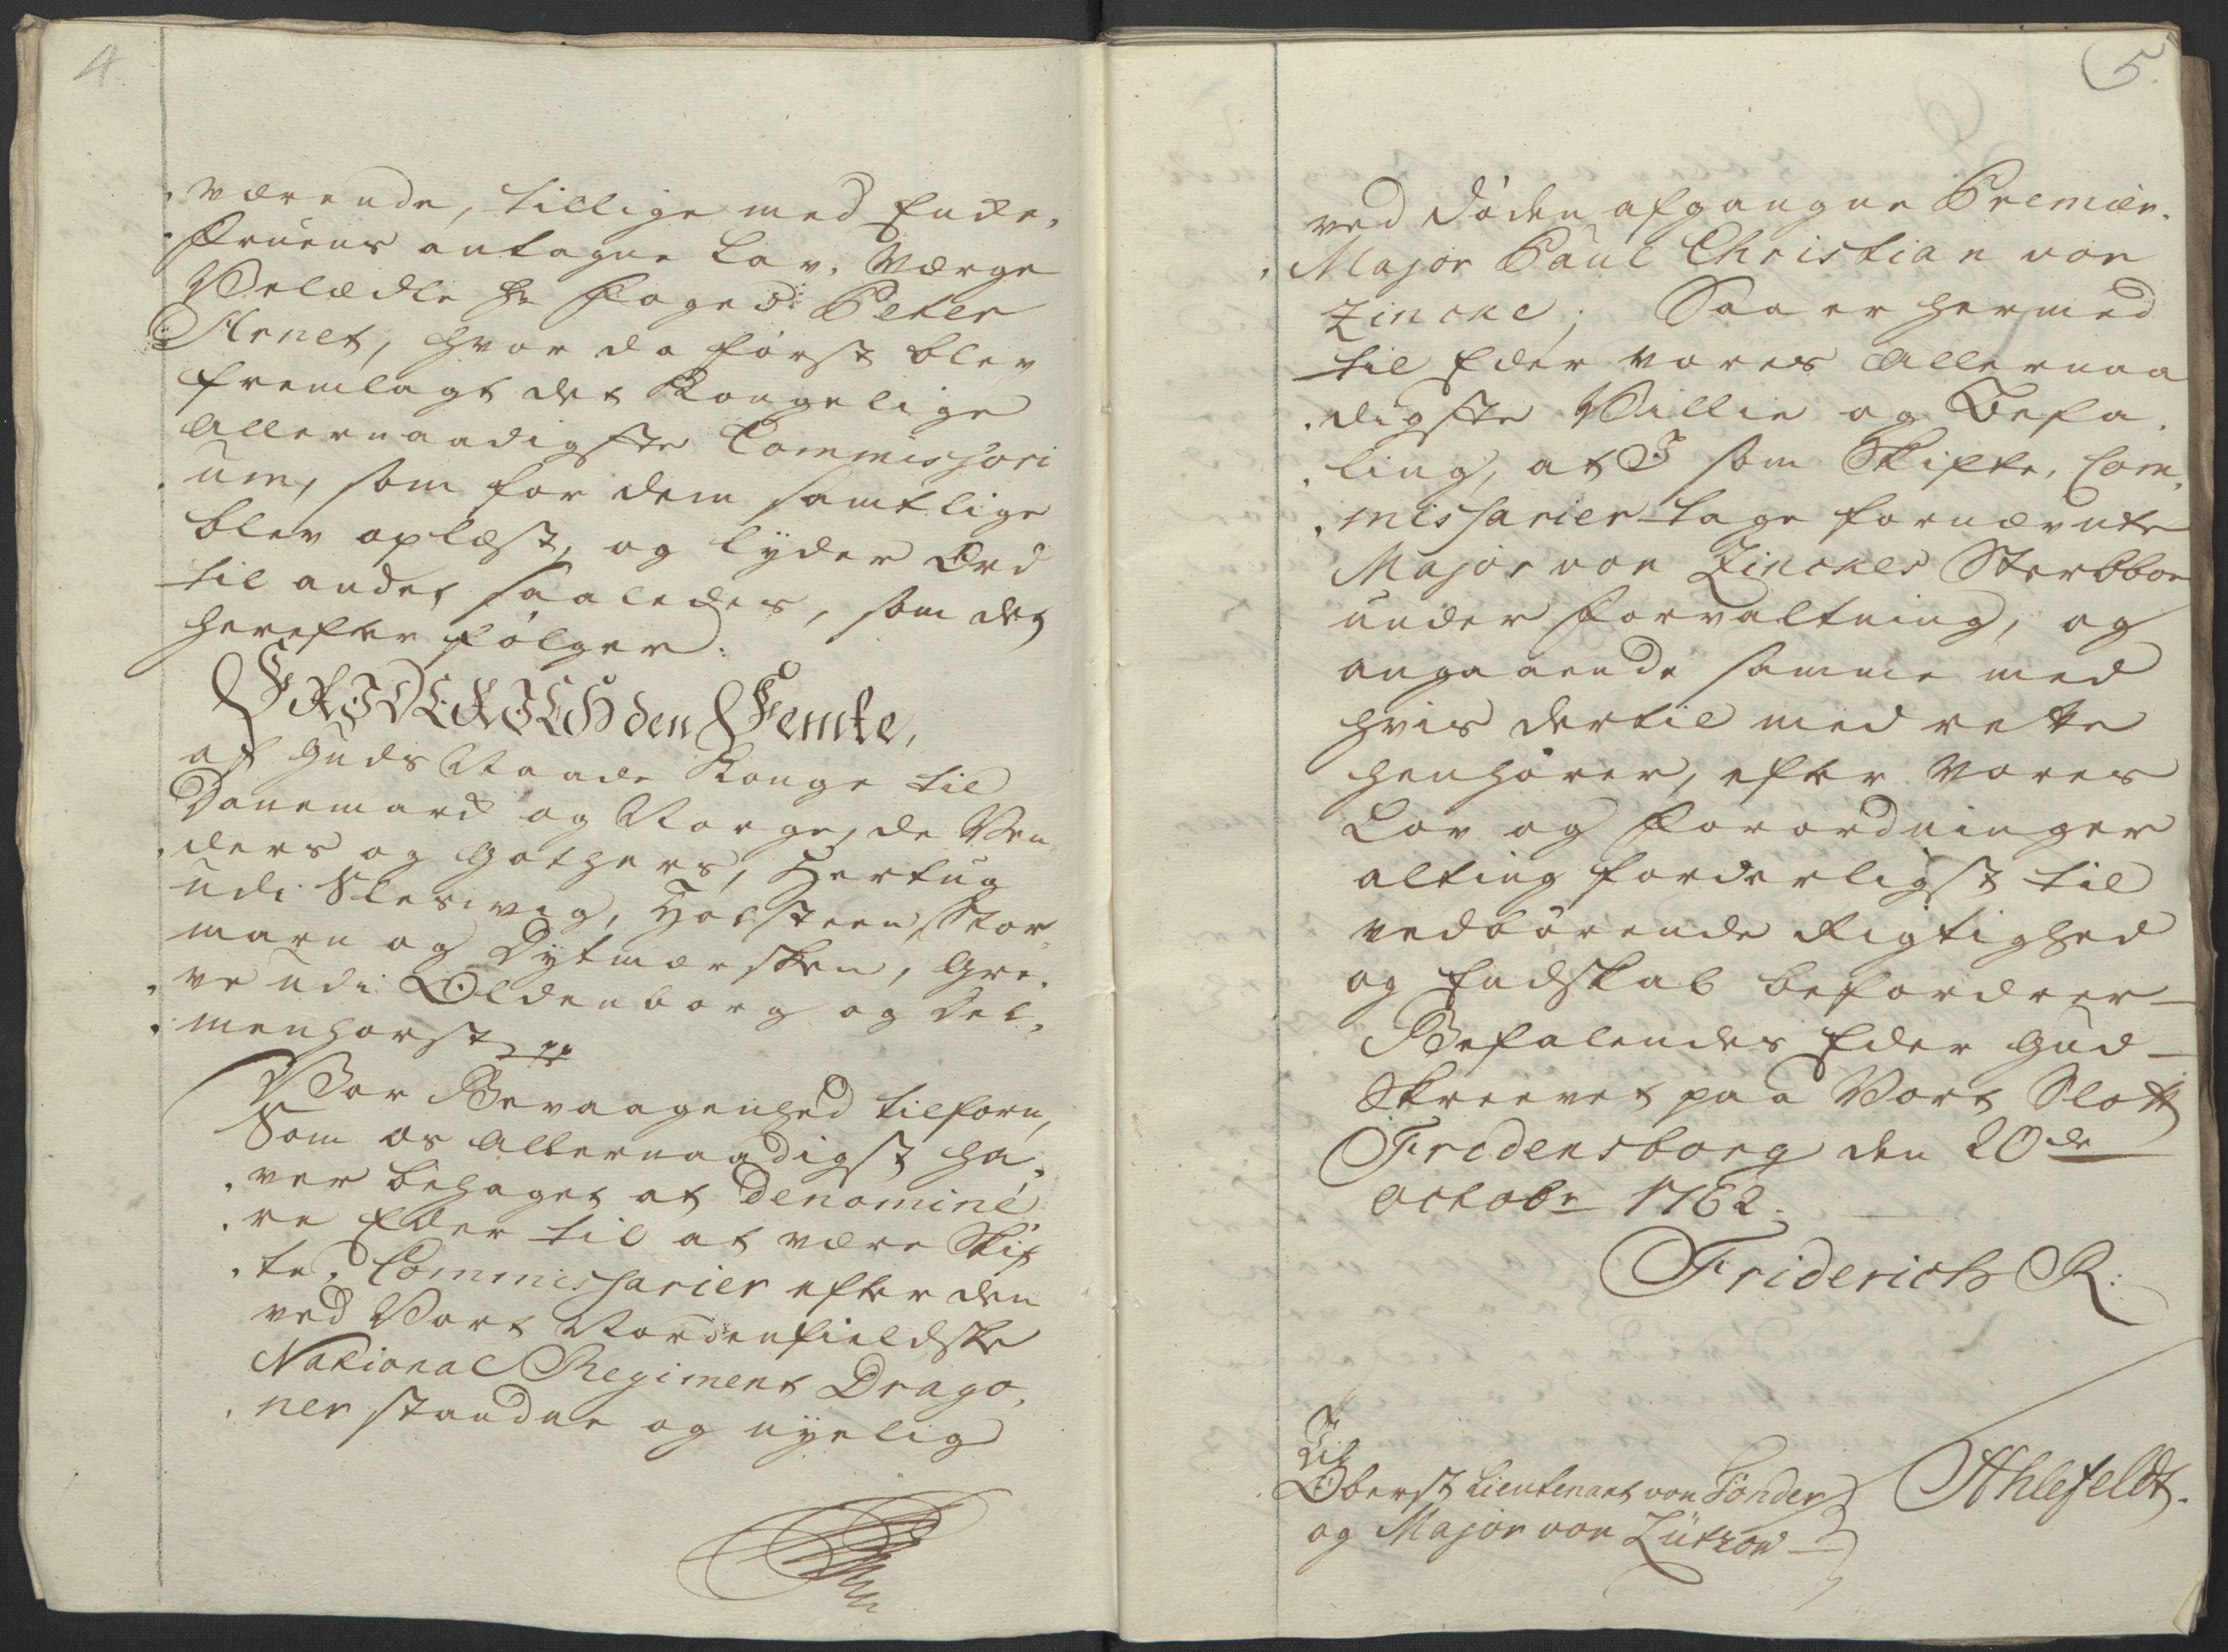 4
værende, tillige med Enke,
Fruens antagne Lav, Værge
Velædle Hr Foged: Peter
Arnet, hvor da först blev
fremlagt det Kongelige
Allernaadigste Commissori
um, som for dem samtlige
blev oplæst, og lÿder Ord
til andet saaledes, som det
herefter fölger:
FRIDERICH den Femte,
af Guds Naade Konge til
Danemarck og Norge, de Ven
ders og Gothers, Hertug
udi Slesvig, Holsteen, Stor
marn og Dytmærsken, Gre,
ve udi Oldenborg og Del,
menhorst
Vor Bevaagenhed tilforn,
Som os Allernaadigst ha,
ver behaget at denomine
re Eder til at være Skif
te, Commissarier efter den
ved Vort Nordenfieldske
National Regiment Drago,
ner standne og nÿelig
5.
ved döden afgangne Premier,
Major Paul Christian von
Zincke; Saa er hermed
til Eder vores Allernaa
digste Villie og Befa,
ling, at I som Skifte, Com,
missarier tage fornævnte
Major von Zinckes Sterbboe
under Forvaltning, og
angaaende samme med
hvis dertil med rette
henhörer, efter Vores
Lov og Forordninger
alting forderligst til
vedbörende Rigtighed
og Endskab befordrer –
Befalendes Eder Gud –
Skrevet paa Vort Slott
Fredensborg den 20de
octobr 1762.
Friderich R:
Til
Oberst Lieutenant von Tönder
og Major von Lützow –
Ahlefeldt.